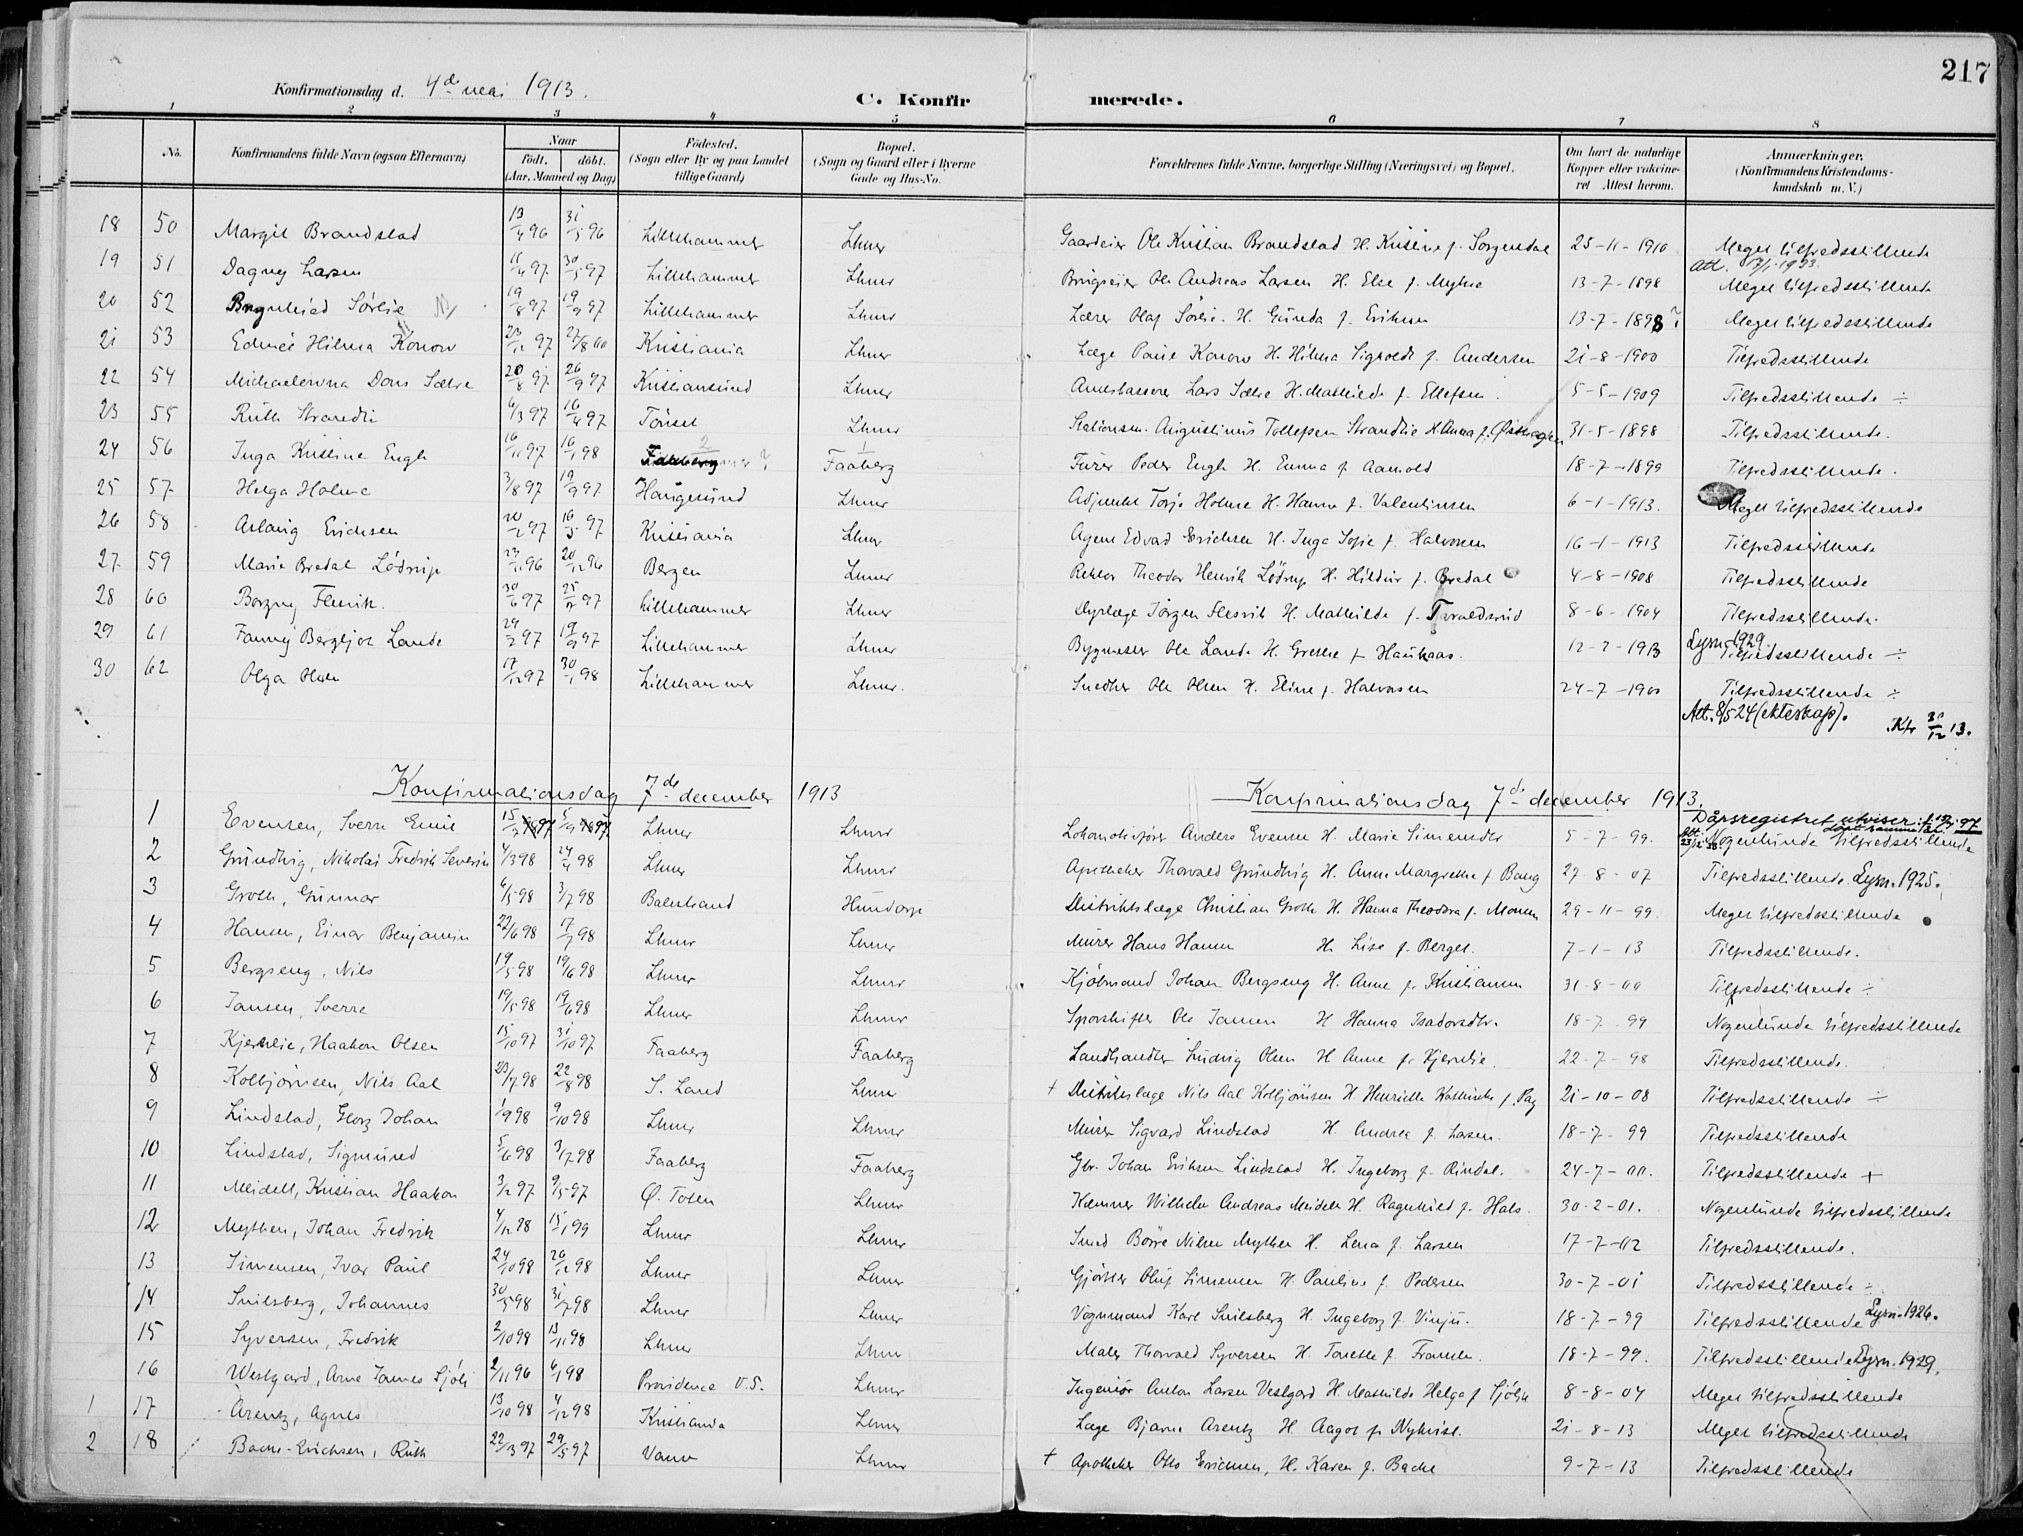 217
Konfirmationsdag d. 4de mai 1913. C. Konfirmerede.
1 2 3 4 5 6 7 8
No. Konfirmandens fulde Navn (ogsaa Efternavn) Naar født. døbt. (Aar, Maaned og Dag) Fødested. (Sogn eller By og paa Landet tillige Gaard) Bopæl. (Sogn og Gaard eller i Byerne Gade og Hus-No. Forældrenes fulde Navne, borgerlige Stilling (Næringsvei) og Bopæl. Om havt de naturlige Kopper eller vakcineret Attest herom. Anmærkninger. (Konfirmandens Kristendomskundskab m. V.)
18 50 Margit Brandstad 13/4 96 31/5 96 Lillehammer Lhmr Gaardeier Ole Kristian Brandstad H. Kristine f. Sorgendal 25-11-1910 Meget tilfredsstillende
19 51 Dagny Larsen 15/4 97 30/5 97 Lillehammer Lhmr Brugseier Ole Andreas Larsen H. Else f. Myhre 13-7-1898 Att. 17/1-1933. Meget tilfredsstillende
20 52 Ragnhild Sørlie 19/8 97 19/9 97 Lillehammer Lhmr Lærer Olaf Sørlie H. Gunda f. Eriksen 13-7-1898? Meget tilfredsstillende
21 53 Edmée Hilma Konow 23/12 97 27/8 00 Kristiania Lhmr Læge Paul Konow H. Hilma f. Andersen 21-8-1900 Tilfredsstillende
22 54 Dons Sæhre 20/8 97 26/9 97 Kristiansund Lhmr Lars Sæhre H. Mathilde f. Ellefsen. 5-5-1909 Tilfredsstillende ÷
23 55 Ruth Strandli 6/3 97 16/4 97 Tønset Lhmr Stationsm. Augustinus Tollefsen Strandlie H. Anna f. Østhagen 31-5-1898 Tilfredsstillende.
24 56 Inga Kristine Engh 16/11 97 16/1 98 Faaberg ? Faaberg Peder Engh H. Emma f. Aamold 18-7-1899 Tilfredsstillende.
25 57 Helga Holme 3/8 97 19/9 97 Haugesund Lhmr Adjunkt Torje Holme H. Hanne f. Valentinsen 6-1-1913. Meget tilfredsstillende
26 58 Aslaug Erichsen 20/2 97 16/5 97 Kristiania Lhmr Agent Edvard Erichsen H. Inga Sofie f. Halvorsen 16-1-1913 Tilfredsstillende
27 59 Marie Bredal Lødrup 23/11 96 20/12 96 Bergen Lhmr Rektor Theodor Henrik Lødrup H. Hildur f. Bredal 4-8-1908 Tilfredsstillende
28 60 Borgny Flesvik. 30/6 97 25/7 97 Lillehammer Lhmr Dyrlæge Jørgen Flesvik H. Mathilde f. Tvraldsrud 8-6-1904 Tilfredsstillende.
29 61 Fanny Bergljot Lande 24/2 97 19/9 97 Lillehammer Lhmr Bygmester Ole Lande H. Grethe f. Haukaas. 12-2-1913 Lysn. 1929. Tilfredsstillende ÷
30 62 Olga Olsen 17/12 97 30/1 98 Lillehammer Lhmr. Snedker Ole Olsen H. Eline f. Halvorsen 24-7-1900 Tilfredsstillende ÷
Att. 8/5 24 (ekteskap). Ktr 31/12 13.
Konfirmationsdag 7de december 1913 Konfirmationsdag 7de december 1913.
Dåpsregistret utviser:
1 Evensen, Sverre Emil 15/7 97 5/9 97 Lhmr Lhmr Lokomotivfører Anders Evensen H. Marie Simensdtr 5-7-99. Nogenlunde tilfredsstillende
2 Grundtvig, Nikolai Fredrik Severin 4/3 98 24/4 98 Lhmr Lhmr Apotheker Thorvald Grundtvig H. Anne Margrethe f. Bang 27-8-07 Tilfredsstillende. Lysn. 1925.
3 Groth, Gunnar 6/5 98 3/7 98 Balestrand Hundorp Distriktslæge Christian Groth H. Hanna Theodora f. Monsen 29-11-99. Meget tilfredsstillende
4 Hansen, Einar Benjamin 22/6 98 17/7 98 Lhmr Lhmr Murer Hans Hansen H. Lise f. Berget. 7-1-13 Tilfredsstillende.
5 Bergseng, Nils 19/5 98 19/6 98 Lhmr Lhmr Kjøbmand Johan Bergseng H. Anne f. Kristiansen 31-8-00 Tilfredsstillende ÷
6 Jansen, Sverre 19/5 98 19/6 98 Lhmr Lhmr Sporskifter Ole Jansen H Hanna Isadorsdtr. 18-7-99 Nogenlunde tilfredsstillende
7 Kjernlie, Haakon Olsen 15/10 97 31/10 97 Faaberg Faaberg Landhandler Ludvig Olsen H Anne f. Kjernlie. 22-7-98 Tilfredsstillende.
8 Kolbjørnsen, Nils Aal 23/7 98 22/8 98 S. Land Lhmr + Distriktslæge Nils Aal Kolbjørnsen H Henriette Kathinka f. Pay 21-10-08 Tilfredsstillende ÷
9 Lindstad, Georg Johan 1/9 98 9/10 98 Lhmr Lhmr Murer Sigvard Lindstad H. Andrea f. Larsen. 18-7-99 Tilfredsstillende
10 Lindstad, Sigmund 5/6 98 3/7 98 Faaberg Faaberg Gbr. Johan Eriksen Lindstad H. Ingeborg f. Rindal. 24-7-00. Tilfredsstillende +
11 Meidell, Kristian Haakon 3/2 97 9/5 97 Ø. Toten Lhmr Kæmner Wilhelm Andreas Meidell H. Ragnhild f. Hals. 30-2-01. Nogenlunde tilfredsstillende
12 Mythen, Johan Fredrik 4/12 98 15/1 99 Lhmr Lhmr Smed Børre Nilsen Mythen H. Lena f. Larsen 17-7-02 Tilfredsstillende.
13 Simensen, Ivar Paul 24/10 98 26/12 98 Lhmr Lhmr Gjørtler Oluf Simensen H Pauline f. Pedersen 30-7-01 Tilfredsstillende ÷
14 Snilsberg, Johannes 30/5 98 31/7 98 Lhmr Lhmr Vognmand Karl Snilsberg H. Ingeborg f. Vinju. 18-7-99 Tilfredsstillende Lysn. 1926.
15 Syversen, Fredrik 2/10 98 13/11 98 Lhmr Lhmr Maler Thorvald Syversen H. Tonette f. Fransen. 18-7-99. Tilfredsstillende Lysn. 1929.
16 Westgard, Arne Jannes Sjøli 2/11 96 6/1 98 Providence U.S. Lhmr Ingeniør Anton Larsen Vestgard H. Mathilde Helga f. Sjølie 8-8-04 Meget tilfredsstillende
1 17 Arentz, Agnes 13/10 98 4/12 98 Kristiania Lhmr Læge Bjarne Arentz H. Aagot f. Nykvist. 21-8-13 Meget tilfredsstillende
2 18 Bache-Erichsen, Ruth 22/3 97 29/5 97 Vann Lhmr + Apotheker Otto Erichsen, H. Karen f. Bache 9-7-13 Tilfredsstillende